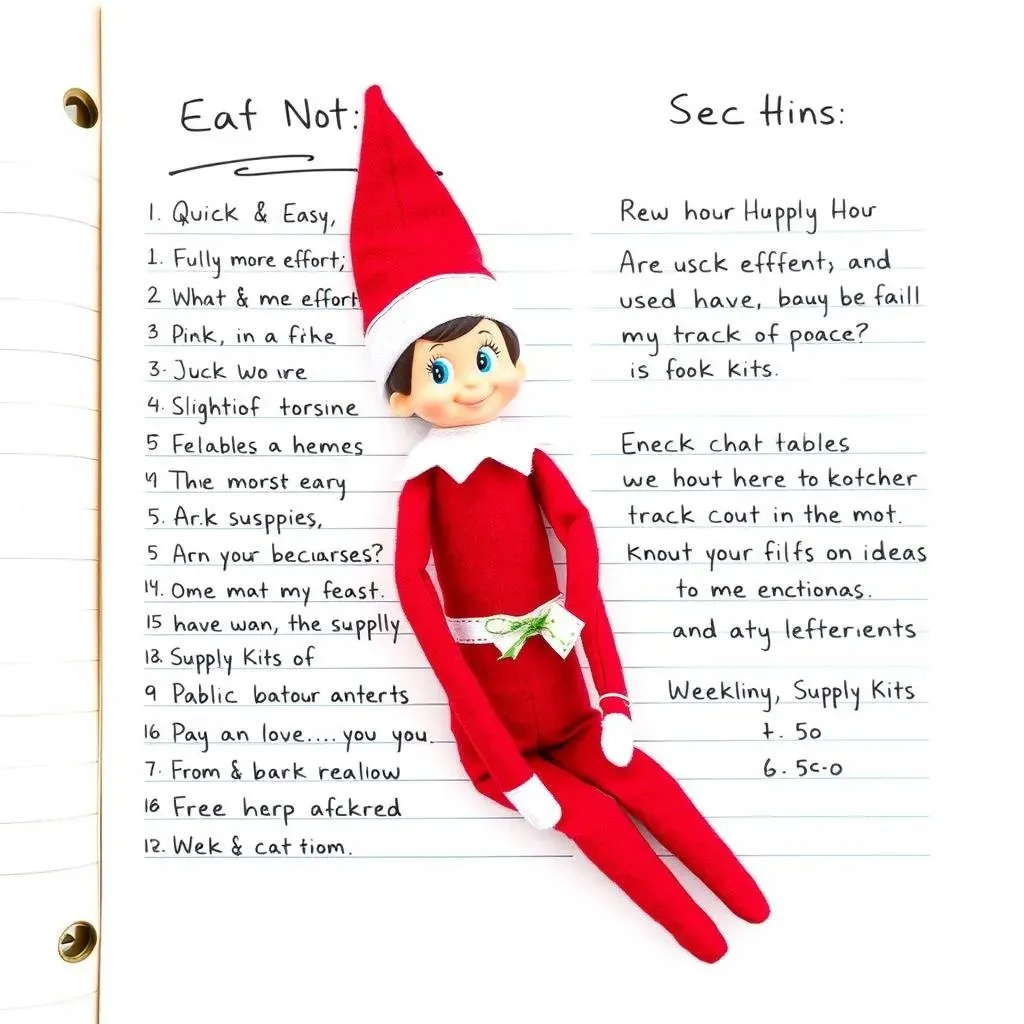 Eaf Not:
1. Quick & Easy,
1. Fully more effort;
2 What & me effort
3 Pink, in a fihe
3. Juck wo ire
4. Slightiof torsine
5 Felables a hemes
4 The morst eary
5. Ar.k susppies,
5 Arn your beciarses?
14. Ome mat my feast.
15 have wan, the supplly
13. Supply Kits of
9 Pablic batour anterts
16 Pay an love.... you you.
7. From & bark realiow
16 Free herp afckred
12. Wek & cat tiom.
Sec Hins:
Rew hour Hupply Hour
Are usck efffent, and
used have, bauy be faill
my track of poace?
is fook kits.
Eneck chat tables
we hout here to kotcher
track cout in the mot.
Knout your filfs on ideas
to me enctionas.
and aty lefterients
Weekliny, Supply Kits
t. 50
6. 5c-0